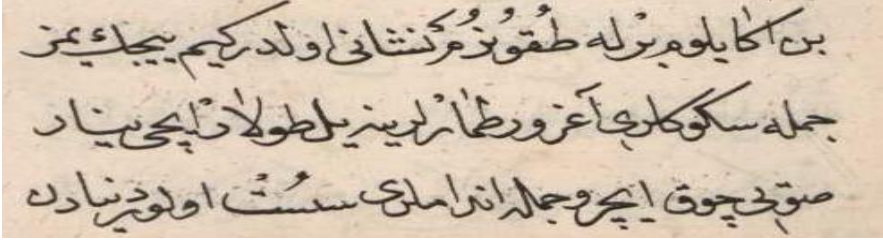 بن اكا يلوم برله طقوزمز نشانى اولدر كيم ييجك يمز
جمله سكوكلرى آغرر و طمارلرينه ييل طولار ايچى سينار
صويى چوق ايچر و جمله اندامارى سست اولور دنيادن